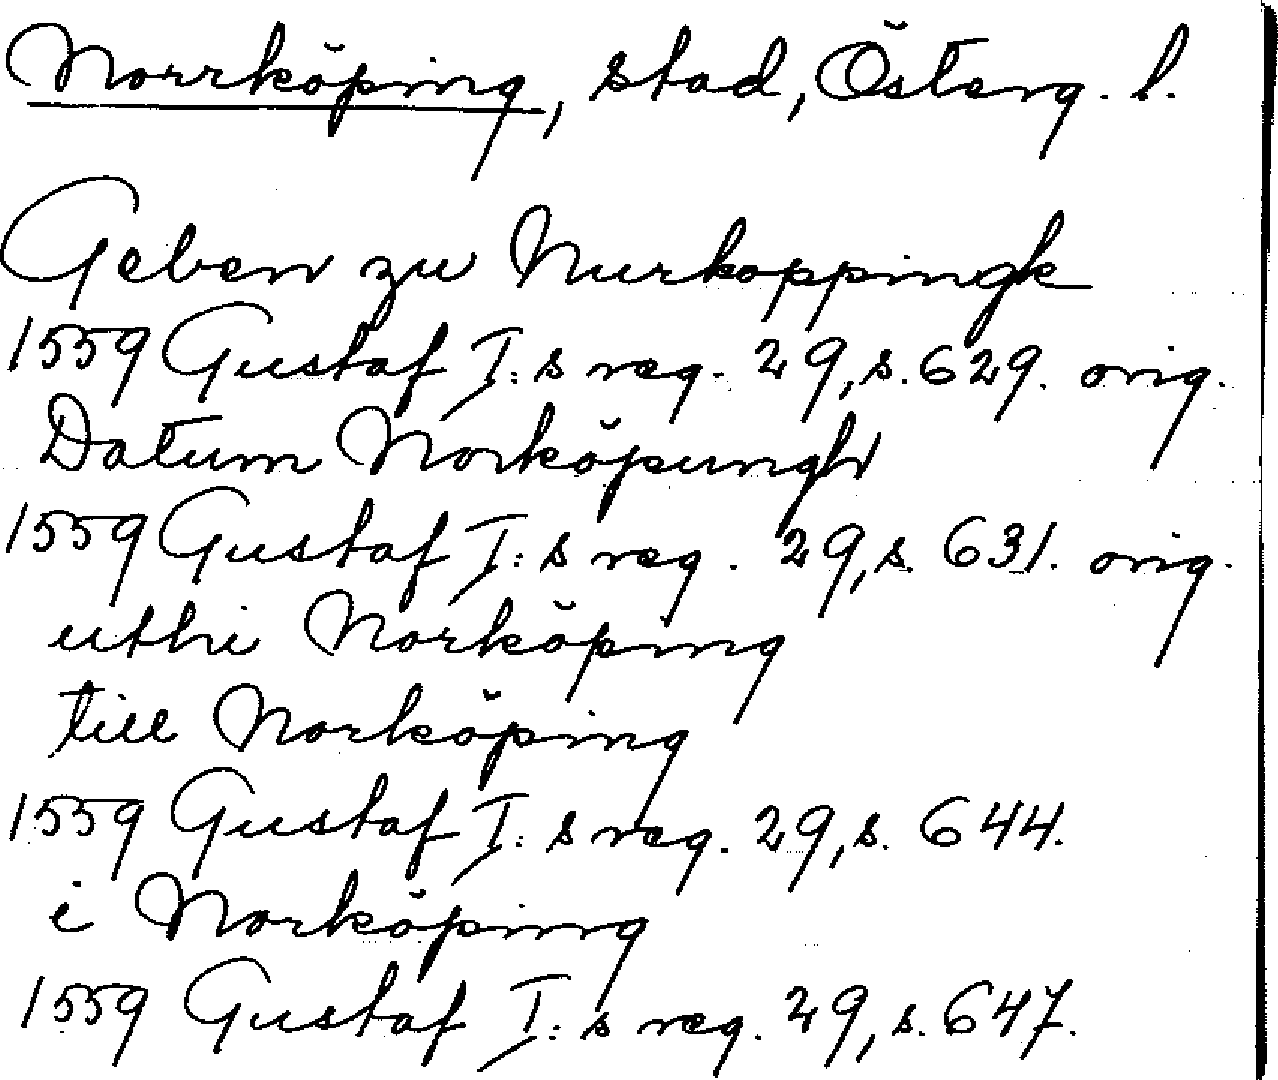 Norrköping, stad, Österg. l.
Geben zu Nurkoppingk
1559 Gustaf I:s reg. 29, s. 629. orig.
Datum Norköpungh
1559 Gustaf I:s reg. 29, s. 631. orig.
uthi Norköping
till Norköping
1559 Gustaf I:s reg. 29, s. 644.
i Norköping
1559 Gustaf I:s reg. 29, s. 647.